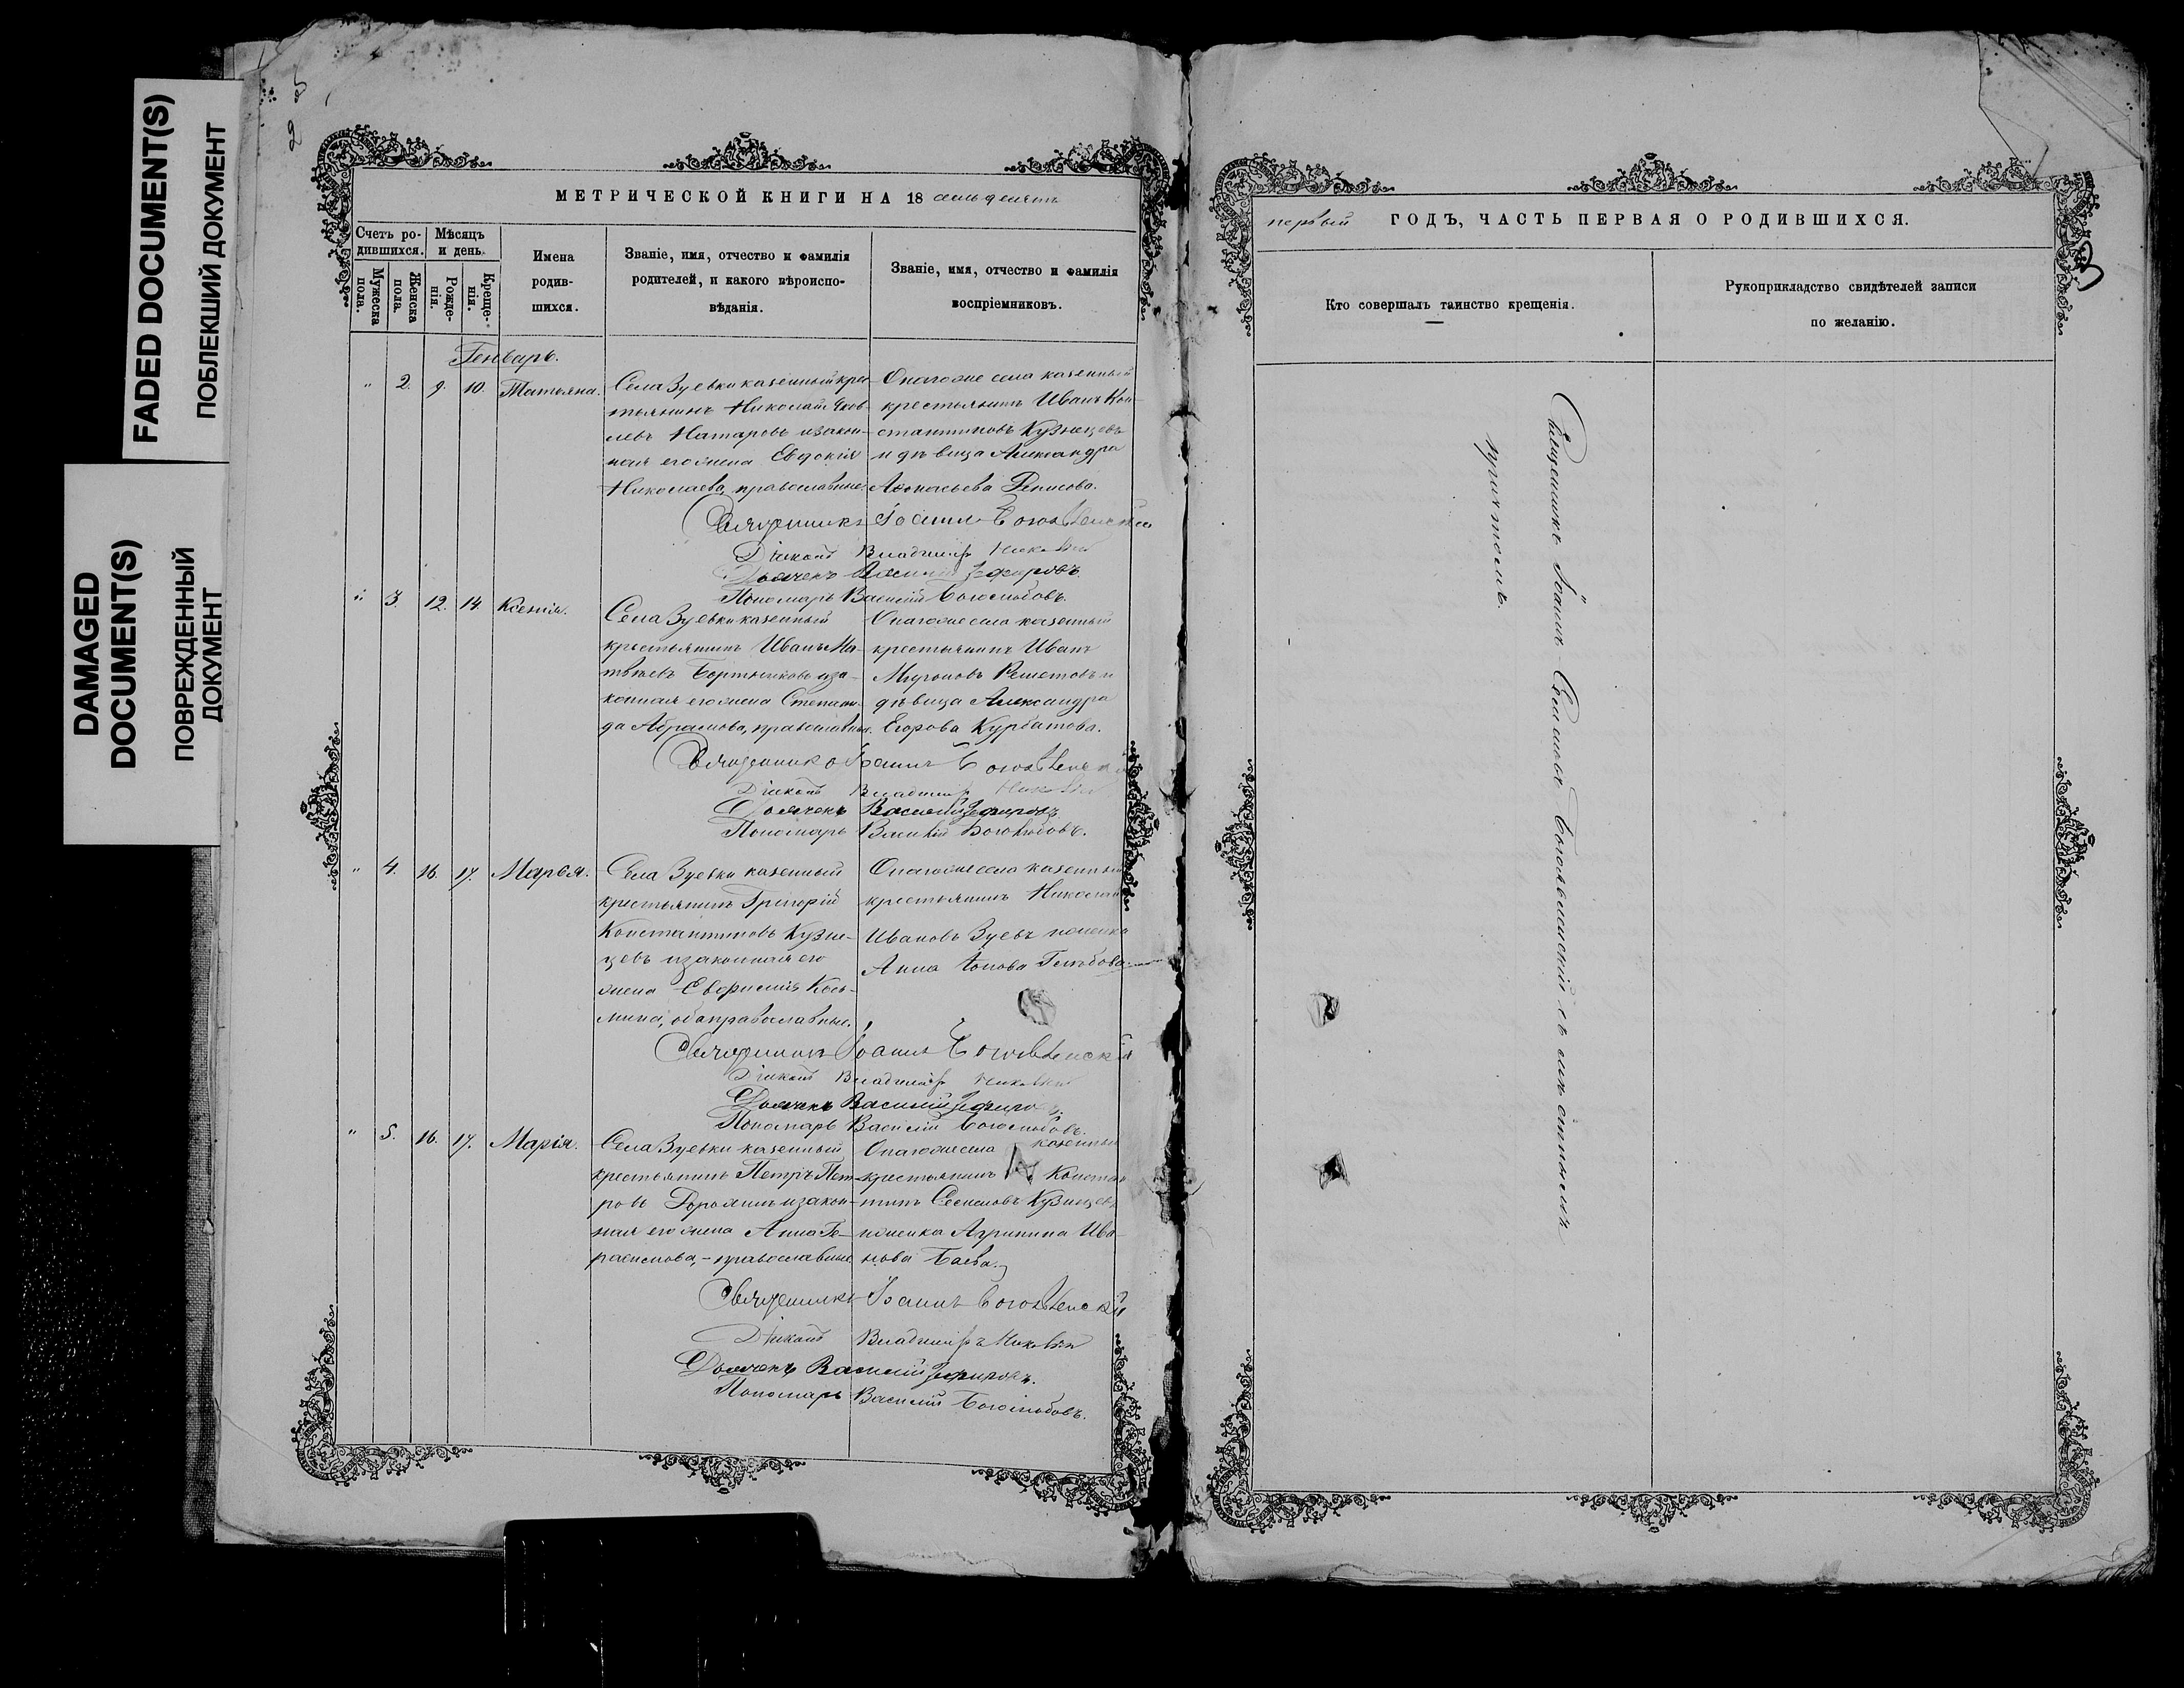 FADED DOCUMENT(S)
ПОБЛЕКШИЙ ДОКУМЕНТ
DAMAGED
DOCUMENT(S)
ПОВРЕЖДЕННЫЙ
ДОКУМЕНТ
МЕТРИЧЕСКОЙ КНИГИ НА 18 семьдесятъ
Счетъ ро-
дившихся.
Мѣсяцъ
и день.
Мужеска
пола.
Женска
пола.
Рожде-
нія.
Креще-
нія.
Имена
родив-
шихся.
Званіе, имя, отчество и фамилія
родителей, и какого вѣроиспо-
вѣданія.
Званіе, имя, отчество и фамилія
воспріемниковъ.
Генварь.
" 2. 9. 10. Татьяна.
Села Зуевки казенный крес-
тьянинъ Николай Яков-
левъ Натаровъ и закон-
ная его жена Евдокія
Николаева, православные
Онагоже села казенный
крестьянинъ Иванъ Кон-
стантиновъ Кузнецовъ
и дѣвица Александра
Аѳонасьева Денисова.
Священникъ Іоаннъ Богоявленскій
Діаконъ Владиміръ
Дьячекъ Василій Зефировъ.
Пономарь Василій Боголюбовъ.
" 3. 12. 14. Ксенія.
Села Зуевки казенный
крестьянинъ Иванъ Ма-
твѣевъ Бортниковъ и за-
конная его жена Степани-
да Абрамова, православные.
Онагоже села казенный
крестьянинъ Иванъ
Мироновъ Решетовъ и
дѣвица Александра
Егорова Курбатова.
Священникъ Іоаннъ Богоявленскій
Діаконъ Владиміръ
Дьячекъ Василій Зефировъ
Пономарь Василій Боголюбовъ.
" 4. 16. 17. Марѳа.
Села Зуевки казенный
крестьянинъ Григорій
Константиновъ Кузне-
цевъ и законная его
жена Евфимія Козь-
мина, оба православные.
Онагоже села казенный
крестьянинъ Николай
Ивановъ Зуевъ и женка
Анна Іонова Глѣбова
Священникъ Іоаннъ Богоявленскій
Діаконъ Владиміръ
Дьячекъ Василій Зефировъ.
Пономарь Василій Боголюбовъ.
" 5. 16. 17. Марія.
Села Зуевки казенный
крестьянинъ Петръ Пет-
ровъ и закон-
ная его жена Анна Ге-
расимова, - православные
Онагоже села казенный
крестьянинъ Констан-
тинъ Семеновъ Кузнецовъ
и женка Агрипина Ива-
нова Баева.
Священникъ Іоаннъ Богоявленскій
Діаконъ Владиміръ
Дьячекъ Василій Зефировъ.
Пономарь Василій Боголюбовъ.
первый ГОДЪ, ЧАСТЬ ПЕРВАЯ О РОДИВШИХСЯ.
3
Кто совершалъ таинство крещенія.
Рукоприкладство свидѣтелей записи
по желанію.
Священникъ Іоаннъ Богоявленскій съ
причтомъ.